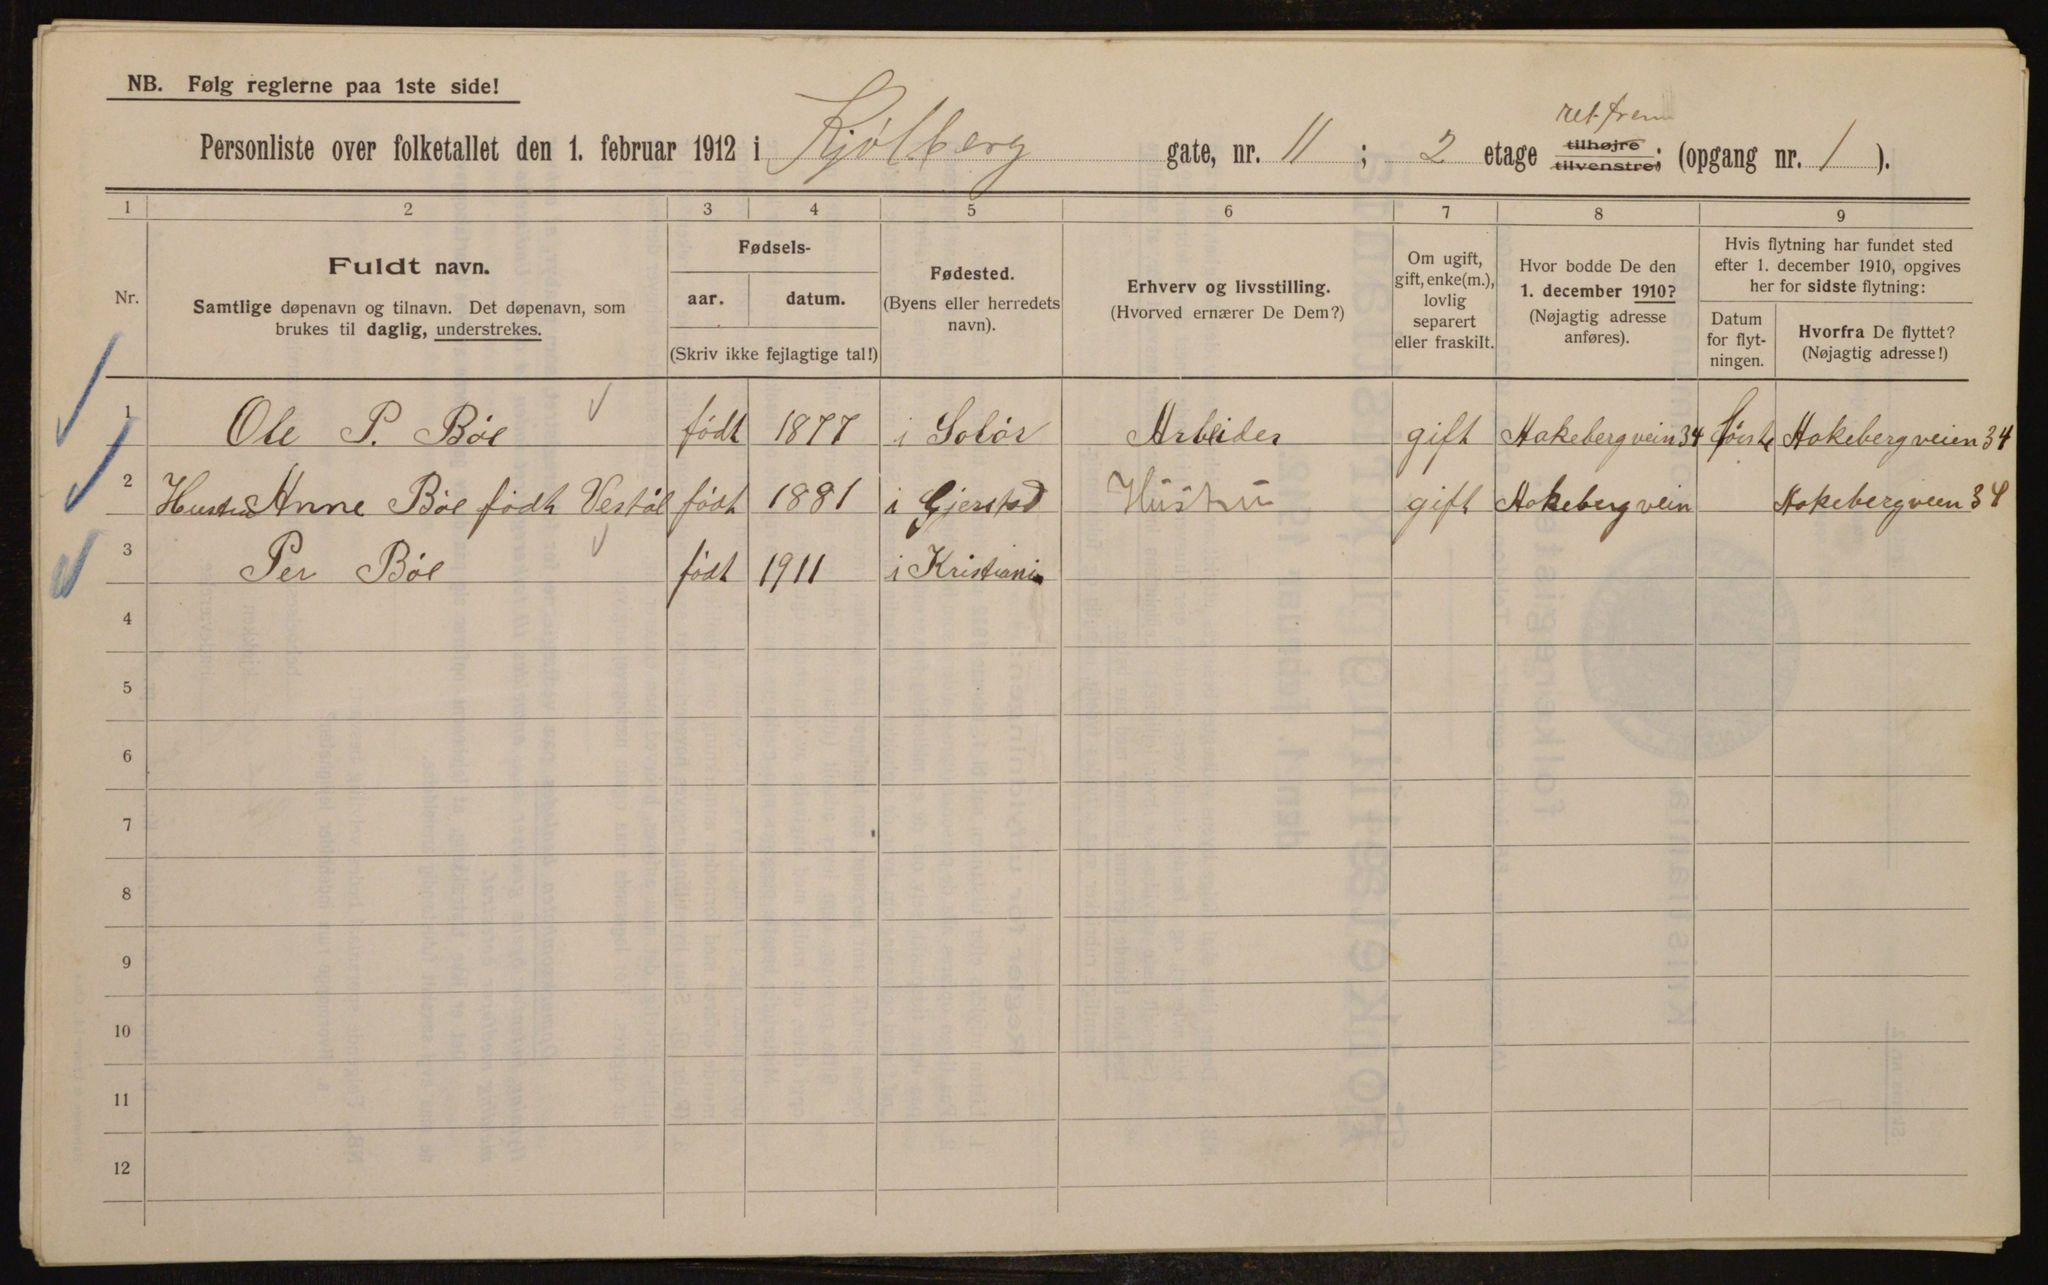 NB. Følg reglerne paa 1ste side!
ret frem
Personliste over folketallet den 1. februar 1912 i Kjølberg gate, nr. 11 ; 2 etage tilhøjre tilvenstre; (opgang nr. 1 ).
1 2 3 4 5 6 7 8 9
Nr.
Fuldt navn.
Samtlige døpenavn og tilnavn. Det døpenavn, som
brukes til daglig, understrekes.
Fødsels-
aar. datum.
(Skriv ikke fejlagtige tal!)
Fødested.
(Byens eller herredets
navn).
Erhverv og livsstilling.
(Hvorved ernærer De Dem?)
Om ugift,
gift, enke(m.),
lovlig
separert
eller fraskilt.
Hvor bodde De den
1. december 1910?
(Nøjagtig adresse
anføres).
Hvis flytning har fundet sted
efter 1. december 1910, opgives
her for sidste flytning:
Datum
for flyt-
ningen.
Hvorfra De flyttet?
(Nøjagtig adresse!)
1 Ole P. Böe født 1877 i Solör Arbeider gift Hakeberg vein 34 Hakeberg veien 34
2 Hustru Anne Böe født Vestöl født 1881 i Gjerstad Hüstru gift Hakeberg vein Hakeberg veien 34
3 Per Böe født 1911 i Kristiania
4
5
6
7
8
9
10
11
12